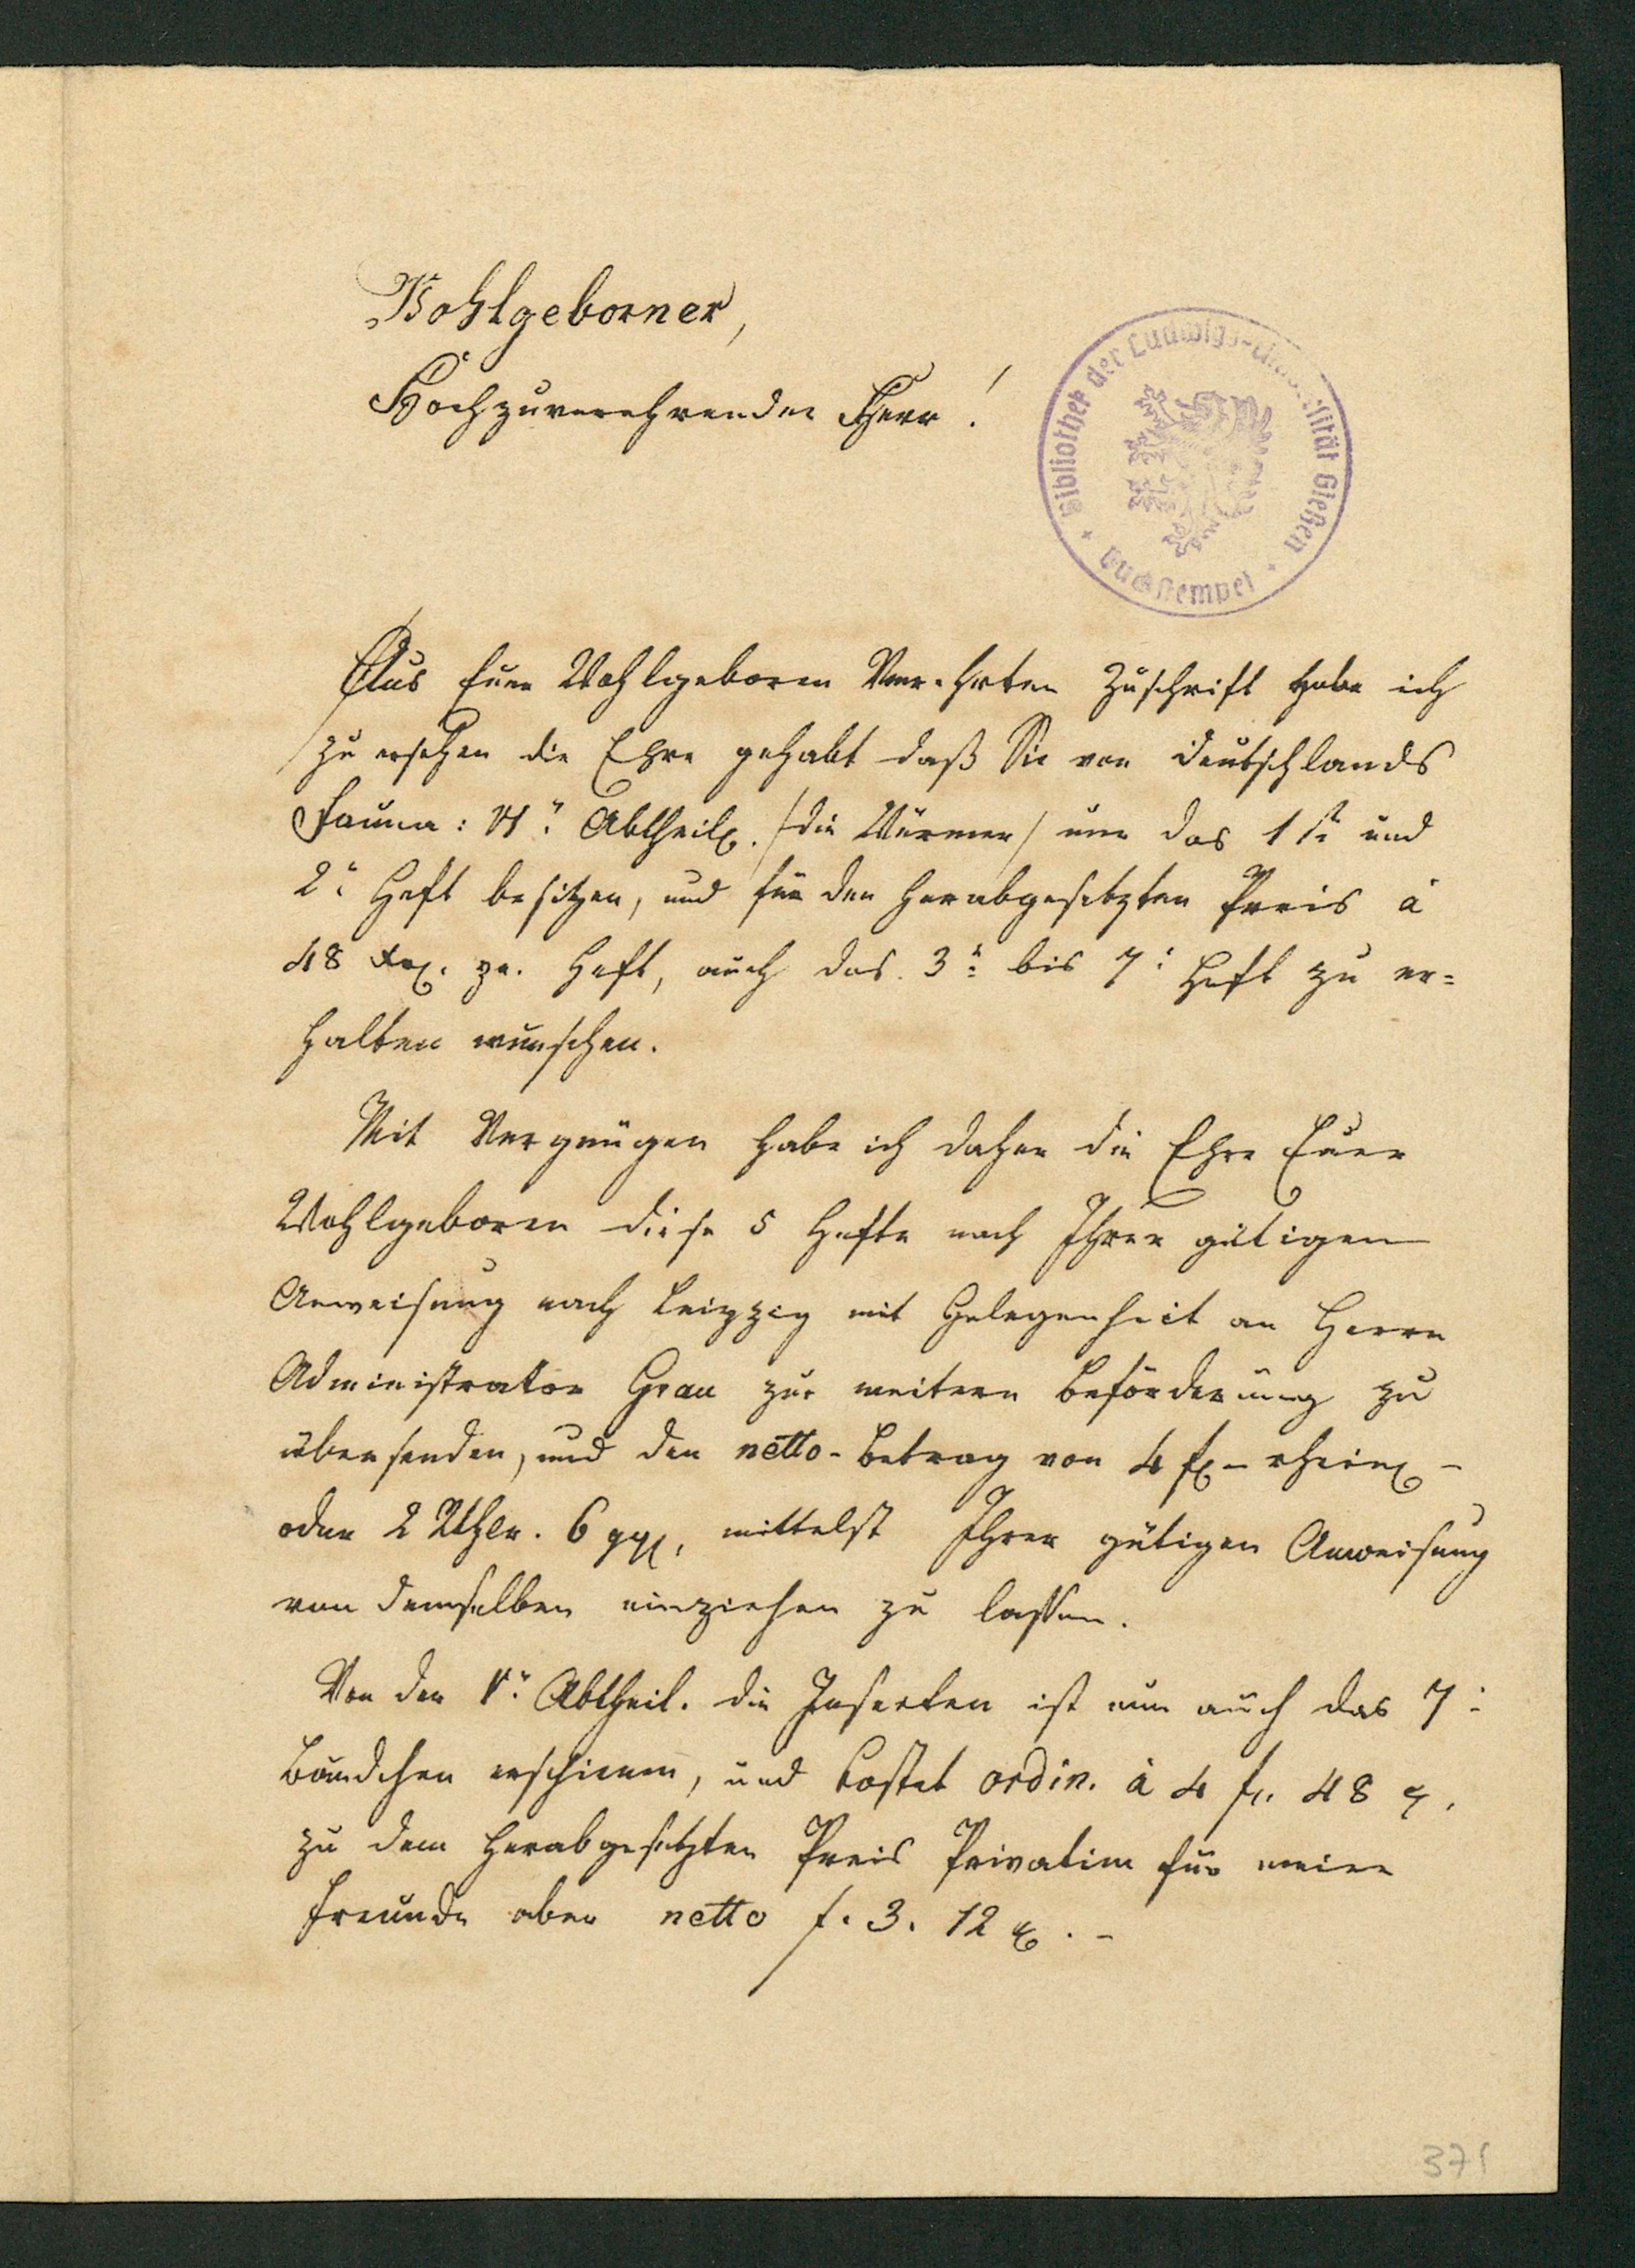 Wohlgeborner,
Hochzuverehrender Herr!
Bibliothek der Ludwigs-Universität Gießen
Buchstempel
Aus Euer Wohlgeboren Verehrten Zuschrift habe ich
zu ersehen die Ehre gehabt daß Sie von Deutschlands
Fauna: VI. Abtheil. /die Würmer/ nur das 1ste und
2. Heft besitzen, und für den herabgesetzten Preis à
48 Xr. pr. Heft, auch das 3. bis 7. Heft zu er=
halten wünschen.
Mit Vergnügen habe ich daher die Ehre Euer
Wohlgeboren diese 5 Hefte nach Ihrer gütigen
Anweisung nach Leipzig mit Gelegenheit an Herrn
Administrator Grau zur weitern Beförderung zu
übersenden, und den netto-Betrag von 4 f. - rhein. -
oder 2 Rthlr. 6 ggr. mittelst Ihrer gütigen Anweisung
von demselben einziehen zu lassen.
Von der V. Abtheil. die Insecten ist nun auch das 7.
Bändchen erschienen, und kostet ordin. à 4 f. 48 x.
zu dem herabgesetzten Preis Privatim für meine
Freunde aber netto f. 3. 12 x. -
371